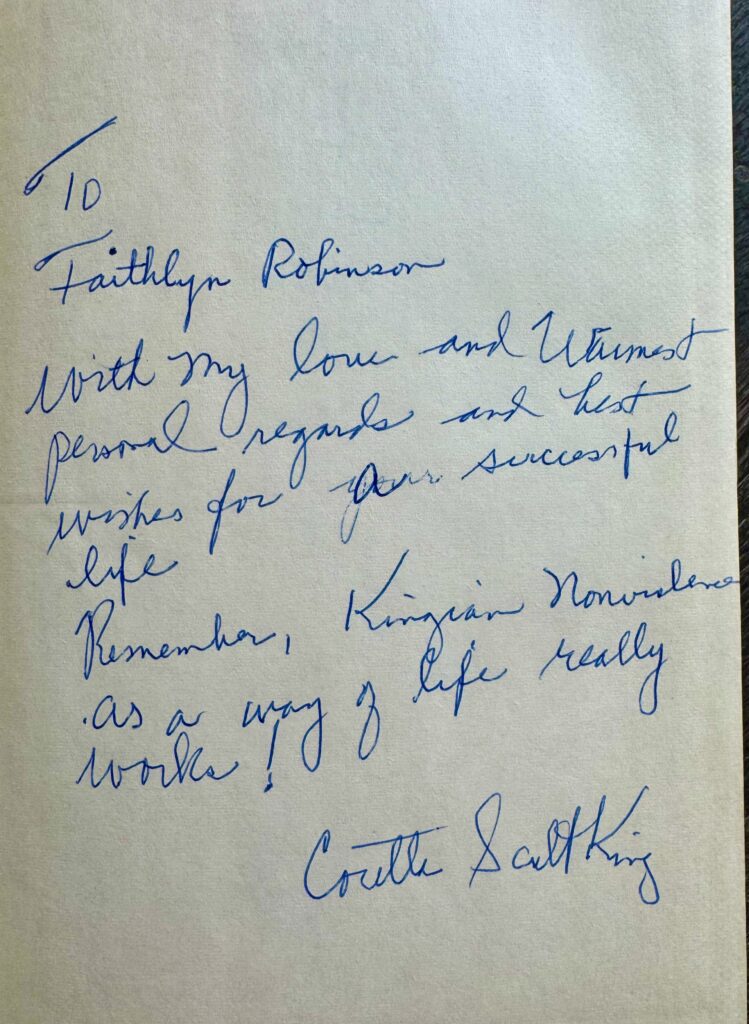 To
Faithlyn Robinson
With my love and Warmest
personal regards and best
wishes for your successful
life
Remember, Kingian Nonviolence
as a way of life really
works!
Coretta Scott King